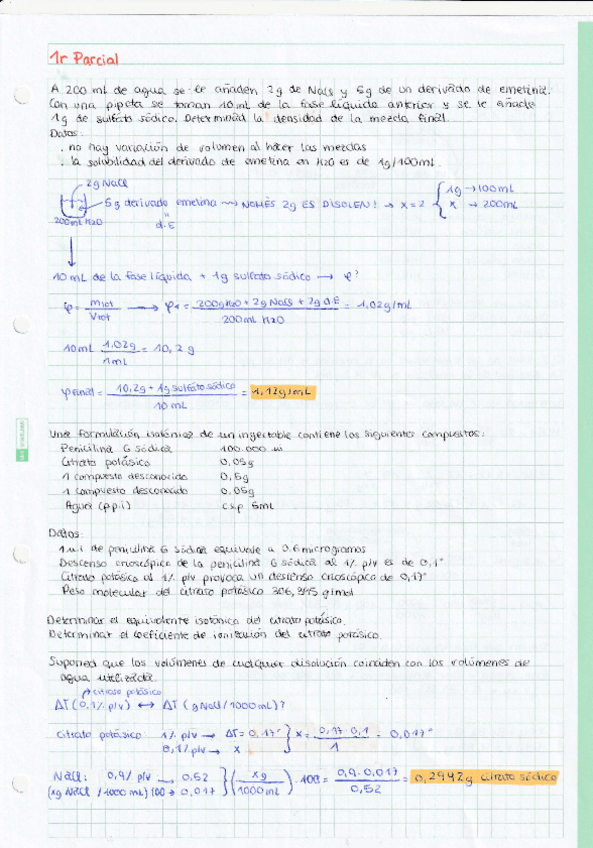 1r Parcial
A 200 ml de agua se le añaden 2g de NaCl y 5g de un derivado de emetina.
Con una pipeta se toman 10 ml de la fase líquida anterior y se le añade
1g de sulfato sódico. Determinad la densidad de la mezcla final.
Datos:
. no hay variación de volumen al hacer las mezclas
. la solubilidad del derivado de emetina en H2O es de 1g/100ml.
2g NaCl
5g derivado emetina → NOMÉS 2g ES DISOLEN! → x=2 { 1g → 100mL
x → 200mL
200ml H2O
d.E
10 mL de la fase líquida + 1g sulfato sódico → φ?
φ = mtot / Vtot → φ1 = 200g H2O + 2g NaCl + 2g d.E / 200 mL H2O = 1,02g/mL
10mL 1,02g / 1mL = 10,2 g
φfinal = 10,2g + 1g sulfato sódico / 10 mL = 1,12g/mL
Una formulación isotónica de un inyectable contiene los siguientes compuestos:
Penicilina G sódica 100.000 ui
Citrato potásico 0,05g
1 compuesto desconocido 0,5g
1 compuesto desconocido 0,05g
Agua (p.p.i) c.s.p 5mL
Datos:
1 u.i de penicilina G sódica equivale a 0.6 microgramos
Descenso crioscópico de la penicilina G sódica al 1% p/v es de 0,1°
Citrato potásico al 1% p/v provoca un descenso crioscópico de 0,17°
Peso molecular del citrato potásico 306,395 g/mol
Determinar el equivalente isotónico del citrato potásico.
Determinar el coeficiente de ionización del citrato potásico.
Suponed que los volúmenes de cualquier disolución coinciden con los volúmenes de
agua utilizada.
citrato potásico
ΔT (0,1% p/v) ↔ ΔT (g NaCl / 1000 mL)?
Citrato potásico: 1% p/v → ΔT = 0,17° } x = 0,17 · 0,1 / 1 = 0,017°
0,1% p/v → x
NaCl: 0,9% p/v → 0,52 } (xg / 1000mL) · 100 = 0,9 · 0,017 / 0,52 = 0,2942g citrato sódico
(xg NaCl / 1000 mL) 100 → 0,017